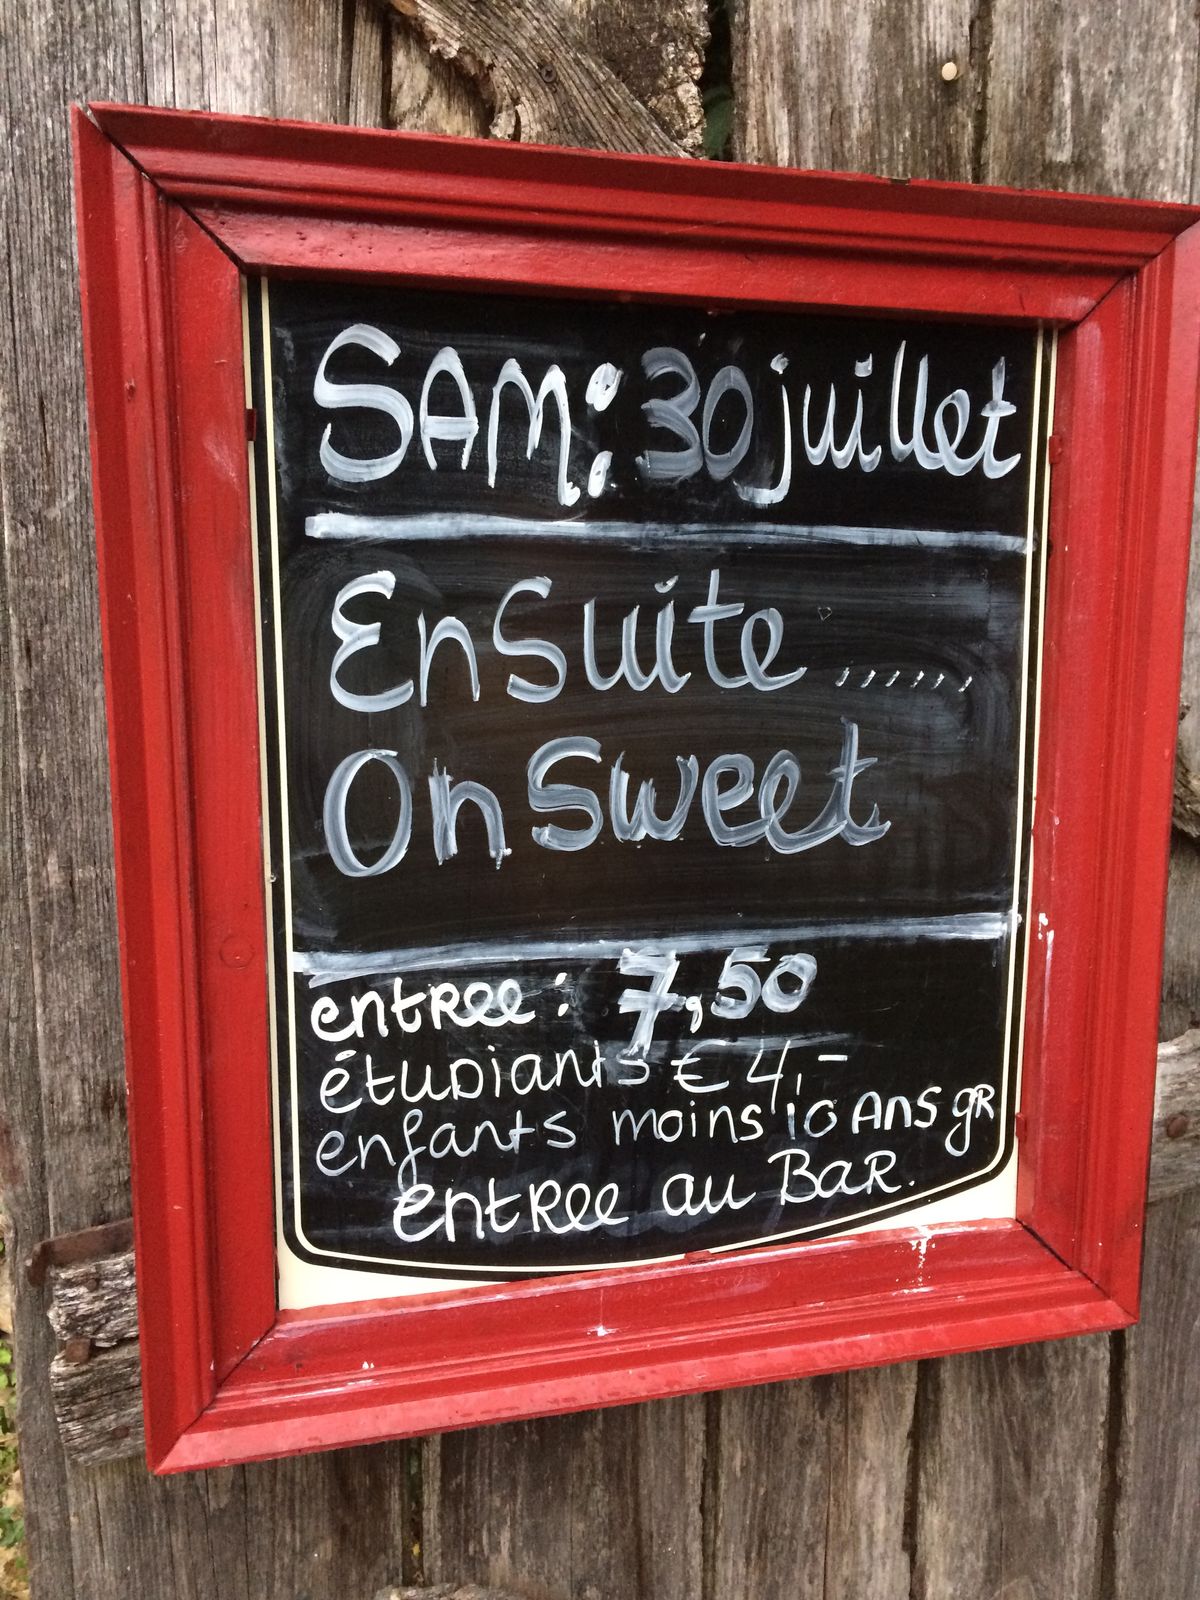 SAM: 30 juillet
EnSuite ......
On Sweet
entree: 7,50
étudiants € 4,-
enfants moins 10 Ans gR
entree au BaR.